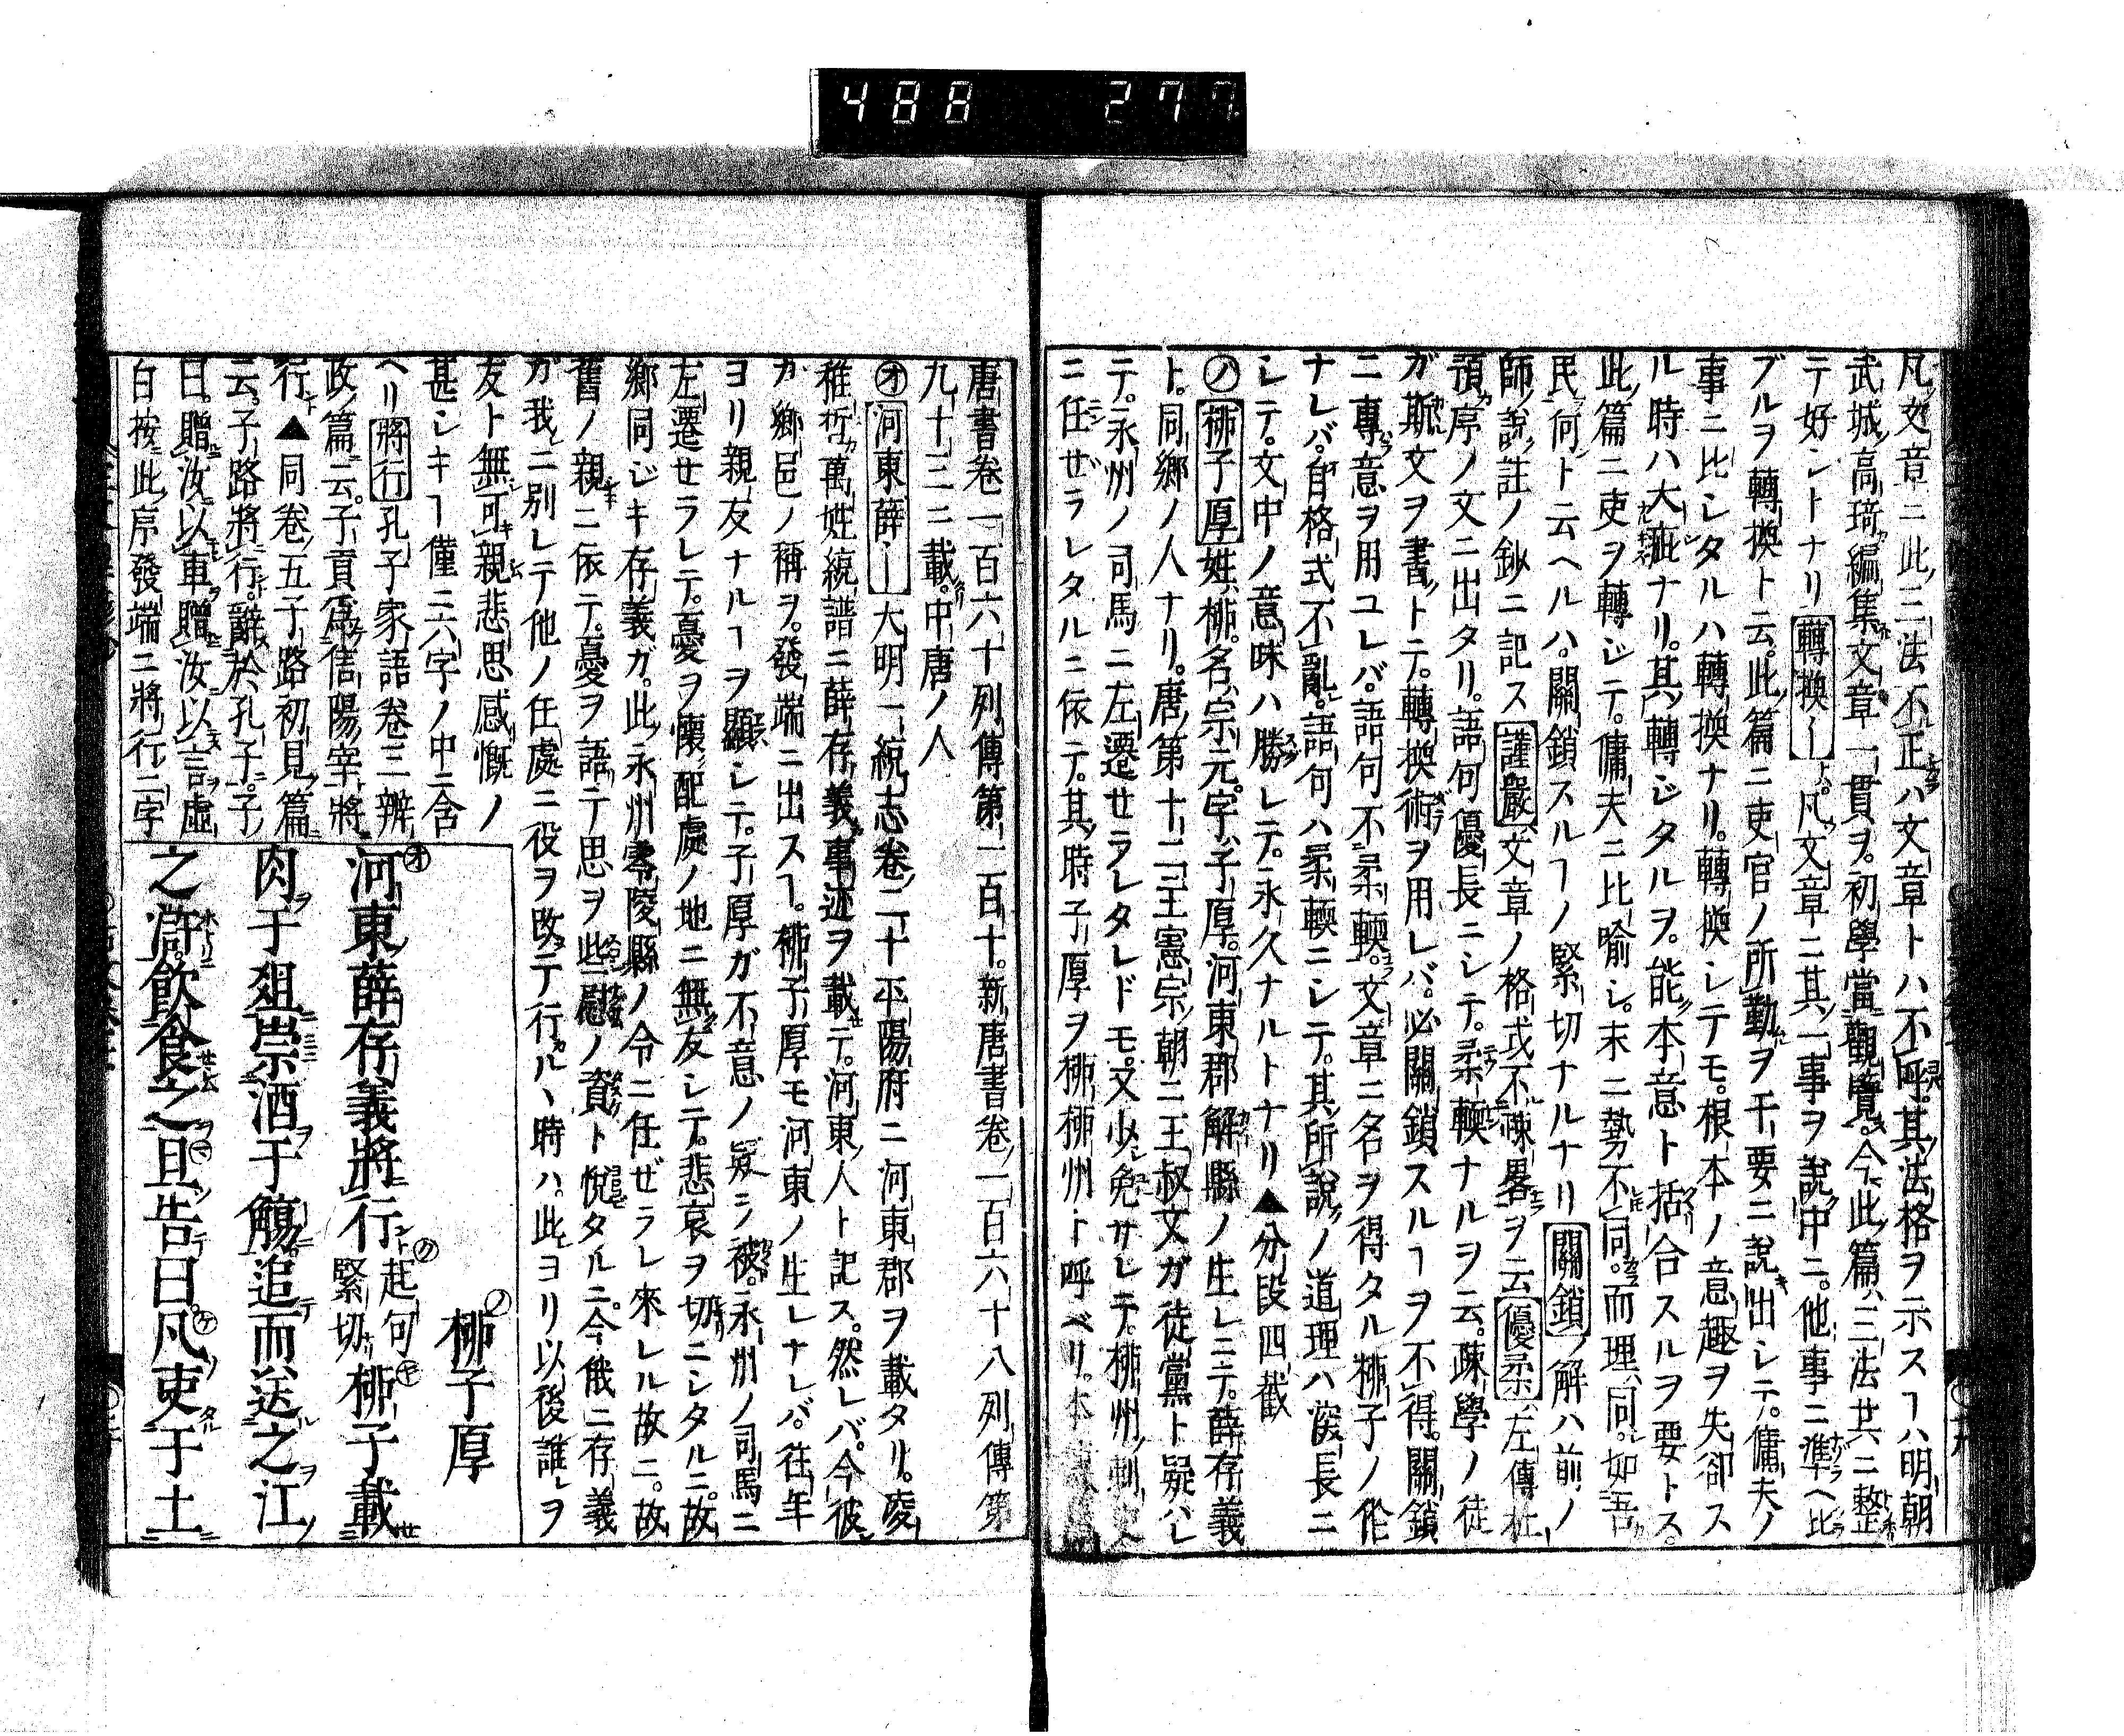 488 277
凡文章ニ此三法不正ハ文章トハ不呼其法格ヲ示スヿハ明朝
武城高琦編集文章一貫ヲ初學當觀覽今此篇三法共ニ整
テ好ントナリ轉換―ト凡文章ニ其一事ヲ說中ニ他事ニ準ヘ比
ブルヲ轉換ト云此篇ニ吏官ノ所勤ヲ干要ニ說出シテ傭夫ノ
事ニ比シタルハ轉換ナリ轉換シテモ根本ノ意趣ヲ失卻ス
ル時ハ大疵ナリ其轉ジタルヲ能本意ト括合スルヲ要トス
此篇ニ吏ヲ轉ジテ傭夫ニ比喻シ末ニ勢不同而理同如吾
民何ト云ヘルハ關鎖スルヿノ緊切ナルナリ關鎖ノ解ハ前ノ
師說註ノ鈔ニ記ス謹嚴文章ノ格式不疎畧ヲ云優柔左傳杜
預序ノ文ニ出タリ語句優長ニシテ柔輭ナルヲ云疎學ノ徒
ガ斯文ヲ書トテ轉換術ヲ用レバ必關鎖スルヿヲ不得關鎖
ニ專意ヲ用ユレバ語句不柔輭文章ニ名ヲ得タル柳子ノ作
ナレバ自格式不亂語句ハ柔輭ニシテ其所說ノ道理ハ深長ニ
シテ文中ノ意味ハ勝レテ永久ナルトナリ▲分段四截
ノ柳子厚姓柳名宗元字子厚河東郡解縣ノ生レニテ薛存義
ト同鄉ノ人ナリ唐第十二主憲宗朝ニ王叔文ガ徒黨ト疑ハレ
テ永州ノ司馬ニ左遷セラレタレドモ又少免サレテ柳州刺史
ニ任ゼラレタルニ依テ其時子厚ヲ柳柳州ト呼ベリ本
唐書卷一百六十列傳第一百十新唐書卷一百六十八列傳第
九十三ニ載中唐ノ人
オ河東薛―大明一統志卷二十平陽府ニ河東郡ヲ載タリ凌
稚哲萬姓統譜ニ薛存義事迹ヲ載テ河東人ト記ス然レバ今彼
カ鄉邑ノ稱ヲ發端ニ出スヿ柳子厚モ河東ノ生レナレバ往年
ヨリ親友ナルヿヲ顯シテ子厚ガ不意ノ疑ヲ被永州ノ司馬ニ
左遷セラレテ憂ヲ懷配處ノ地ニ無友シテ悲哀ヲ切ニシタルニ故
鄉同ジキ存義ガ此永州零陵縣ノ令ニ任ゼラレ來レル故ニ故
舊ノ親ニ依テ憂ヲ語テ思ヲ些慰ノ資ト悅タルニ今俄ニ存義
ガ我ニ別レテ他ノ任處ニ役ヲ改テ行ル丶時ハ此ヨリ以後誰ヲ
友ト無可親悲思感慨ノ
甚シキヿ僅ニ六字ノ中ニ含
ヘリ將行孔子家語卷三辨
政篇云子貢爲信陽宰將
行▲同卷五子路初見篇
云子路將行辭於孔子子
曰贈汝以車贈汝以言虛
白按此序發端ニ將行二字
ノ柳子厚
オ河東薛存義將行起句緊切柳子載
肉于爼崇酒于觴追而送之江
之滸飲食之且告曰凡吏于土